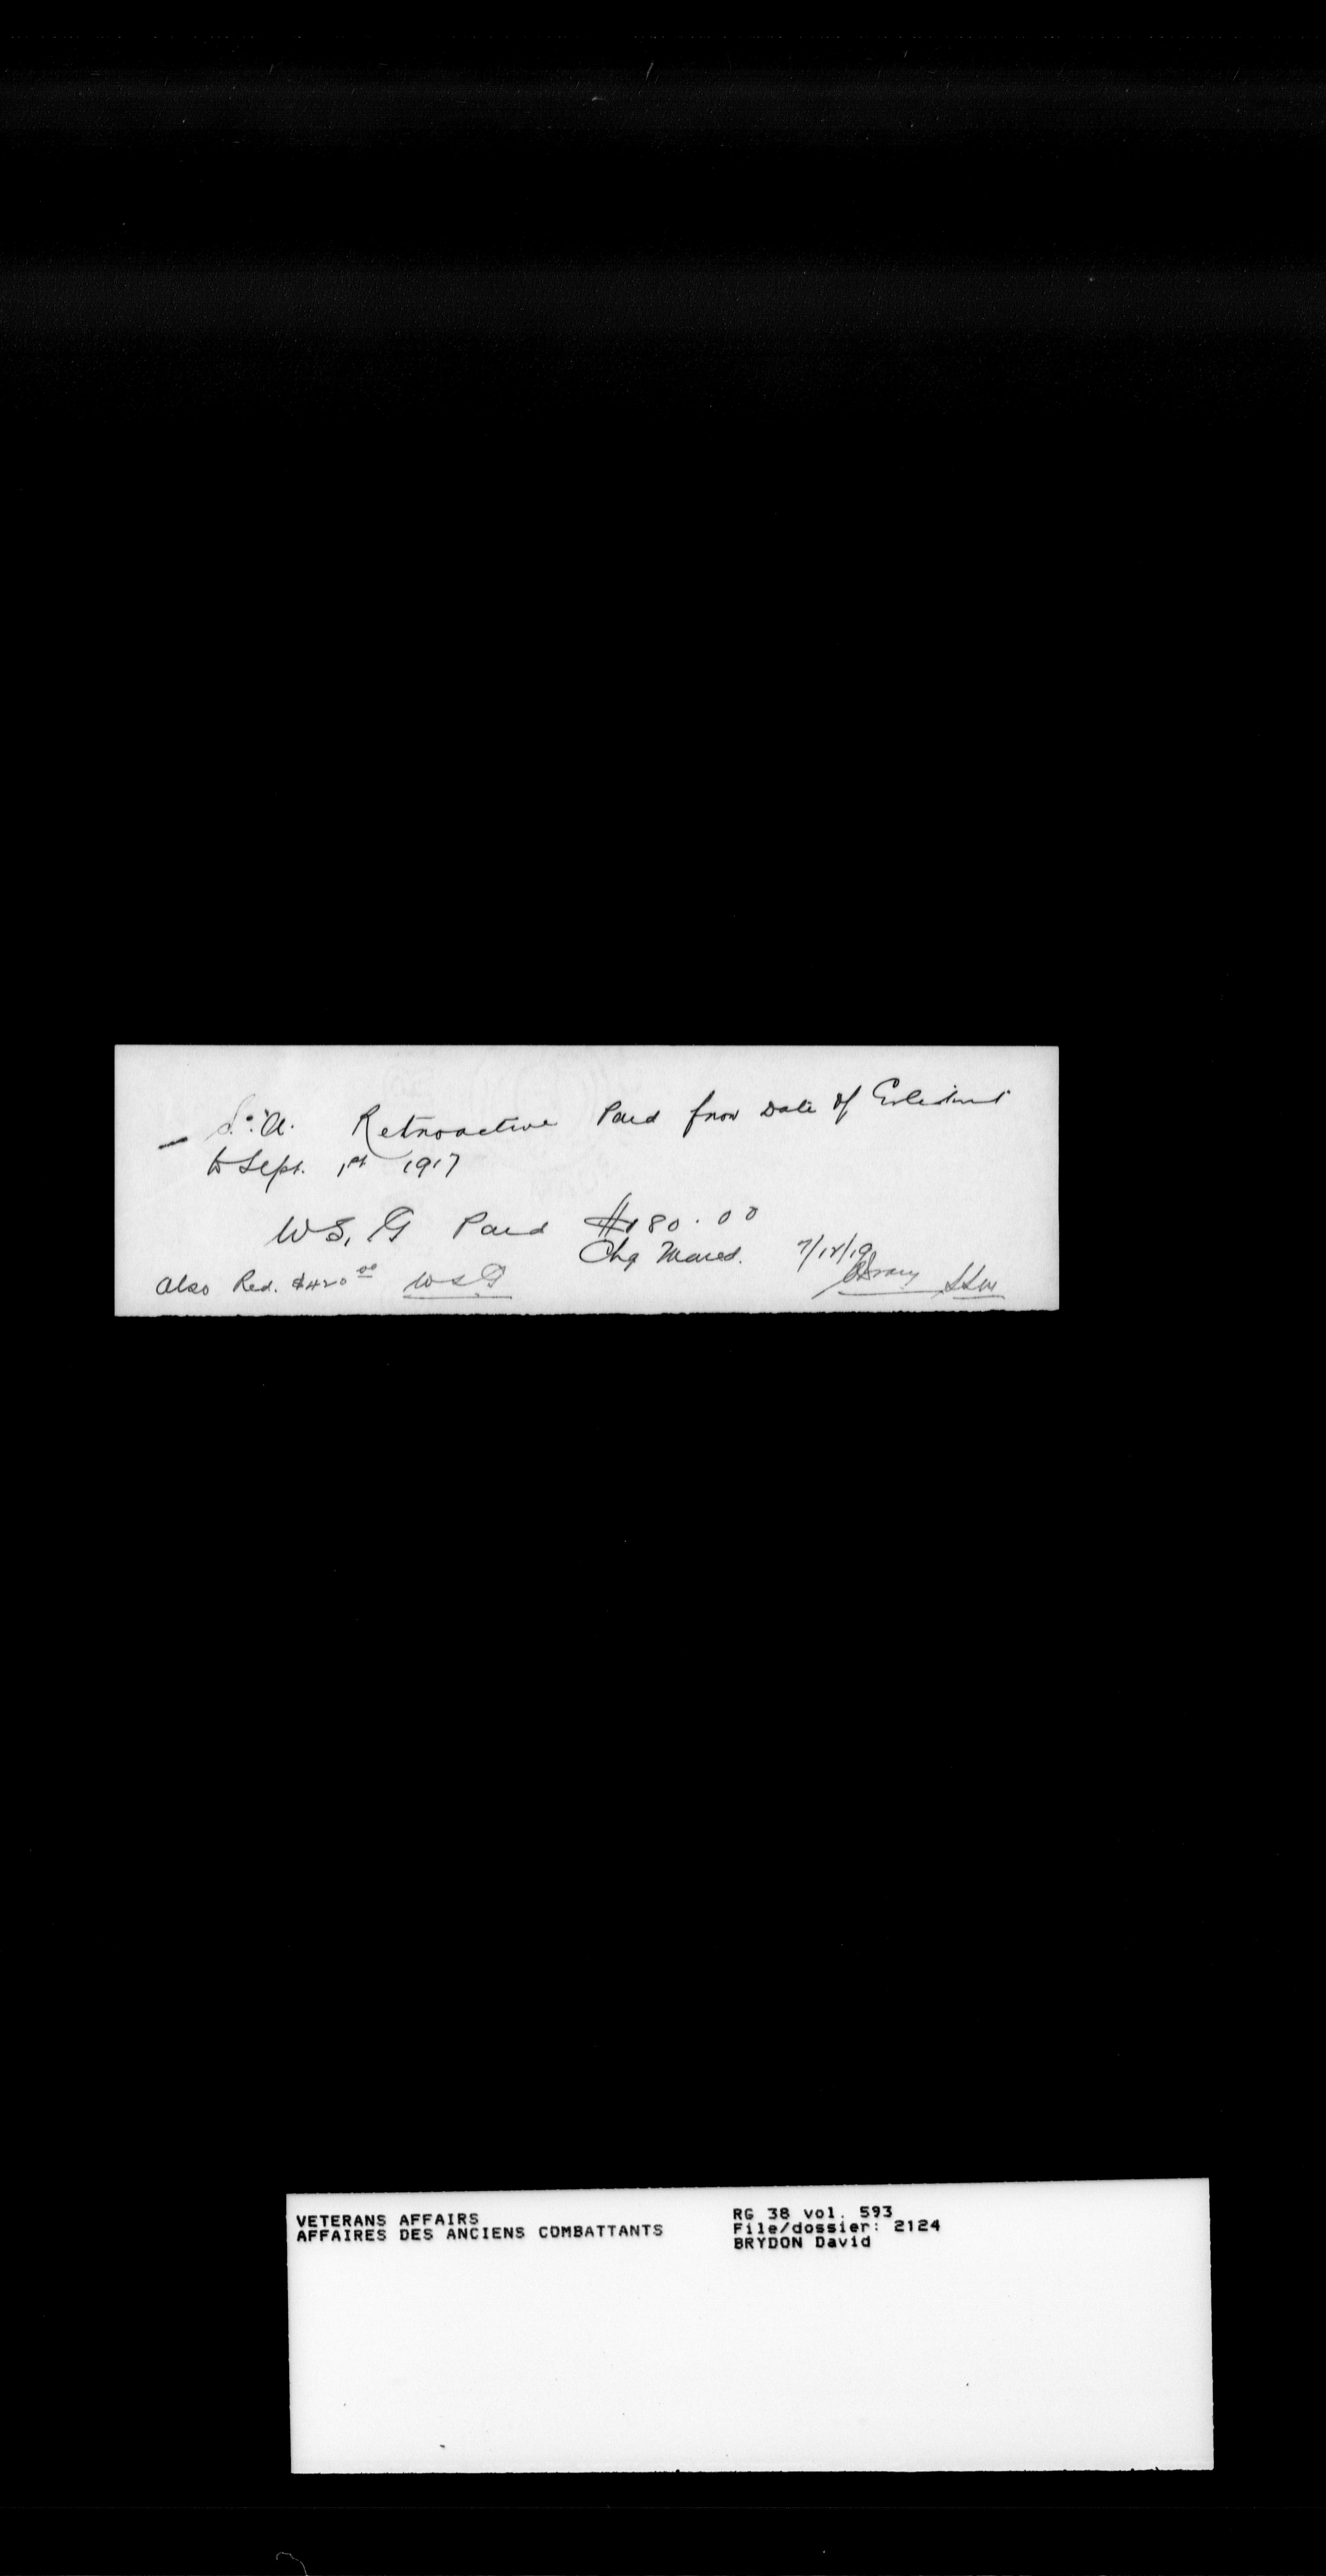 S. A. Retroactive Paid from Date of Enlistment
to Sept. 1st 1917
W S. G Paid $180.00
Chq 7/12/19
Also Red. $420 00 W S G
VETERANS AFFAIRS
AFFAIRES DES ANCIENS COMBATTANTS
RG 38 vol. 593
File/dossier: 2124
BRYDON David